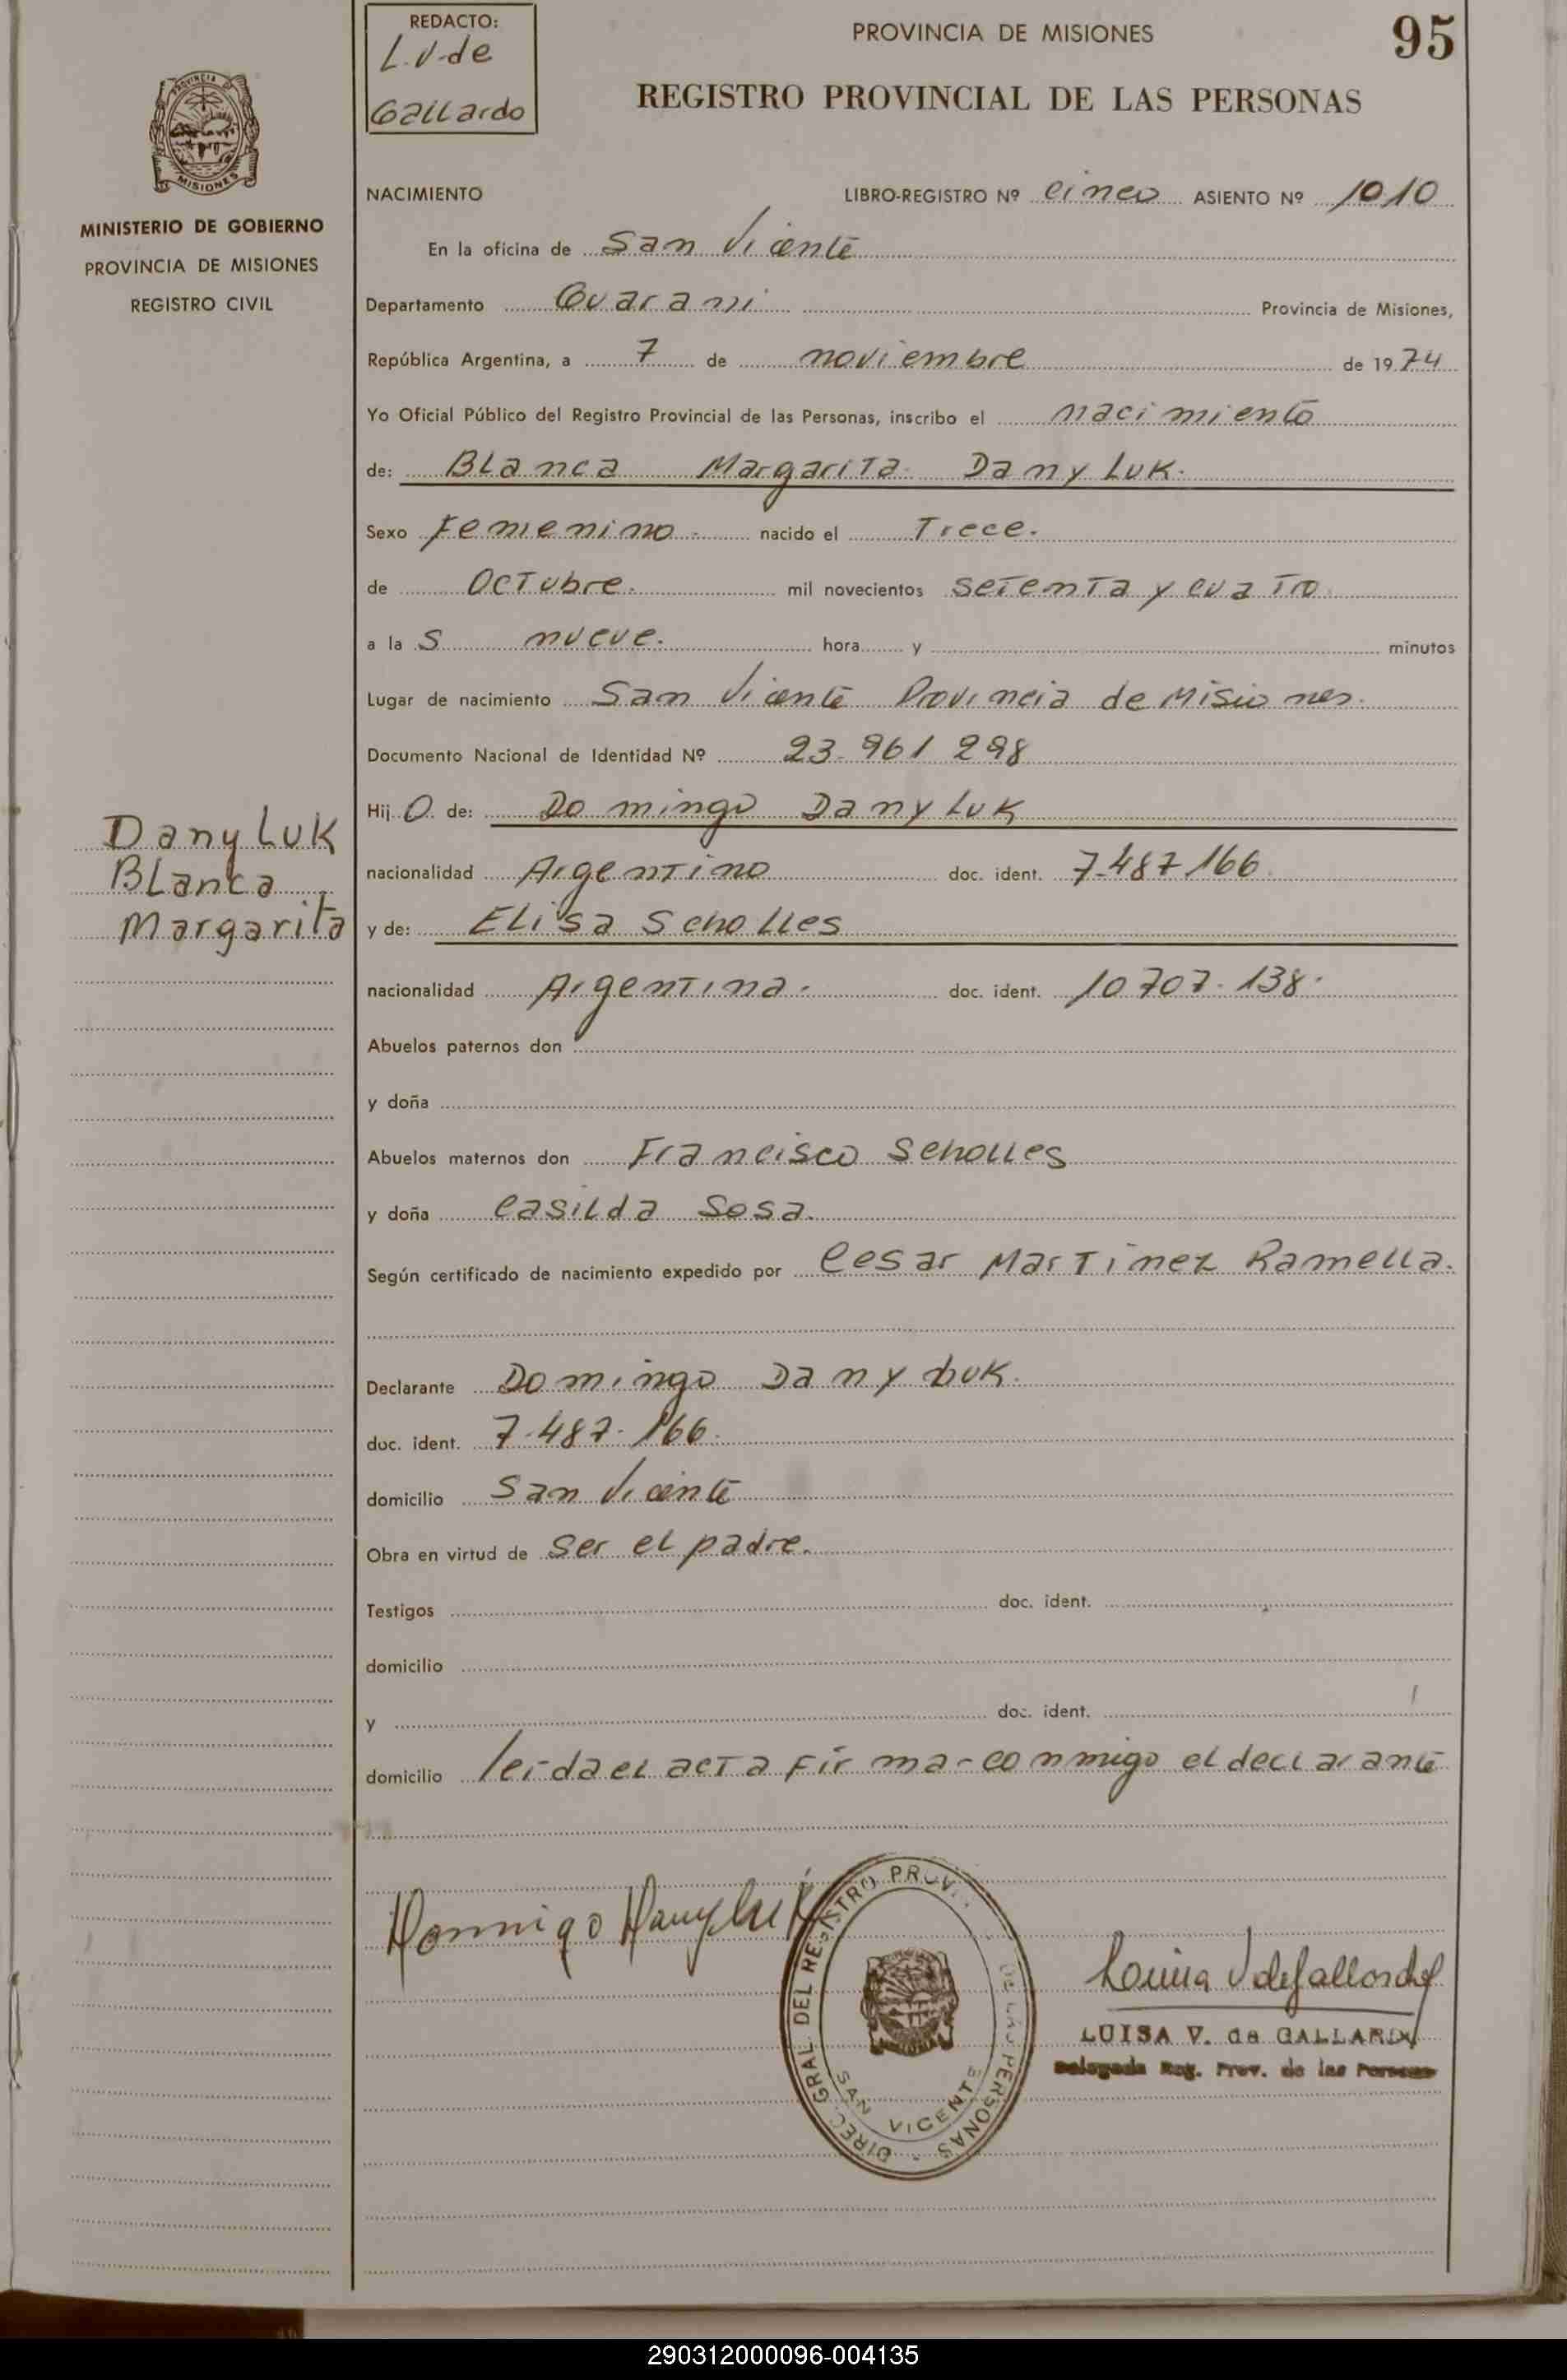 REDACTO:
L.V. de
Gallardo
PROVINCIA DE MISIONES
95
REGISTRO PROVINCIAL DE LAS PERSONAS
PROVINCIA
MISIONES
MINISTERIO DE GOBIERNO
PROVINCIA DE MISIONES
REGISTRO CIVIL
NACIMIENTO LIBRO-REGISTRO Nº cinco ASIENTO Nº 1010
En la oficina de San Vicente
Departamento Guarani Provincia de Misiones,
República Argentina, a 7 de noviembre de 1974
Yo Oficial Público del Registro Provincial de las Personas, inscribo el nacimiento
de: Blanca Margarita Danyluk.
Sexo Femenino nacido el Trece.
de Octubre. mil novecientos setenta y cuatro
a la s nueve. hora y minutos
Lugar de nacimiento San Vicente Provincia de Misiones.
Documento Nacional de Identidad Nº 23.961298
Hij O de: Domingo Danyluk
nacionalidad Argentino doc. ident. 7.487.166
y de: Elisa Scholles
nacionalidad Argentina. doc. ident. 10.707.138.
Abuelos paternos don
y doña
Abuelos maternos don Francisco Scholles
y doña Casilda Sosa.
Según certificado de nacimiento expedido por Cesar Martinez Ramella.
Declarante Domingo Danyluk.
doc. ident. 7.487.166.
domicilio San Vicente
Obra en virtud de ser el padre.
Testigos doc. ident.
domicilio
y doc. ident.
domicilio leida el acta firma conmigo el declarante
Danyluk
Blanca
Margarita
Domingo Danyluk
DIREC. GRAL. DEL REGISTRO PROV. DE LAS PERSONAS
SAN VICENTE
Louisa V de Gallardo
LUISA V. de GALLARDO
Delegada Reg. Prov. de las Personas
290312000096-004135